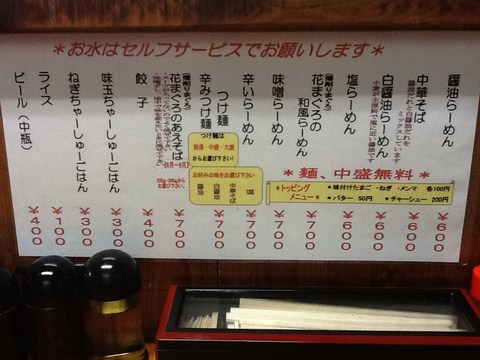 ＊お水はセルフサービスでお願いします＊
醤油らーめん ￥６００
中華そば
醤油だれと白醤油だれを
ミックスしています
￥６００
白醤油らーめん
￥６００
塩らーめん ￥６００
花まぐろの和風らーめん
￥７００
味噌らーめん ￥７００
辛いらーめん ￥７００
つけ麺
辛みつけ麺
￥７００
つけ麺は
からお選び下さい!
お好みの味をお選び下さい
醤油
白醤油
中華そば
塩
花まぐろのあえそば
￥７００
餃子 ￥４００
味玉ちゃーしゅーごはん ￥３００
ねぎちゃーしゅーごはん ￥３００
ライス ￥１００
ビール（中瓶） ￥４００
＊麺、中盛無料＊
＊トッピング
メニュー＊
・味付けたまご・ねぎ・メンマ 各100円
・バター 50円
・チャーシュー 200円